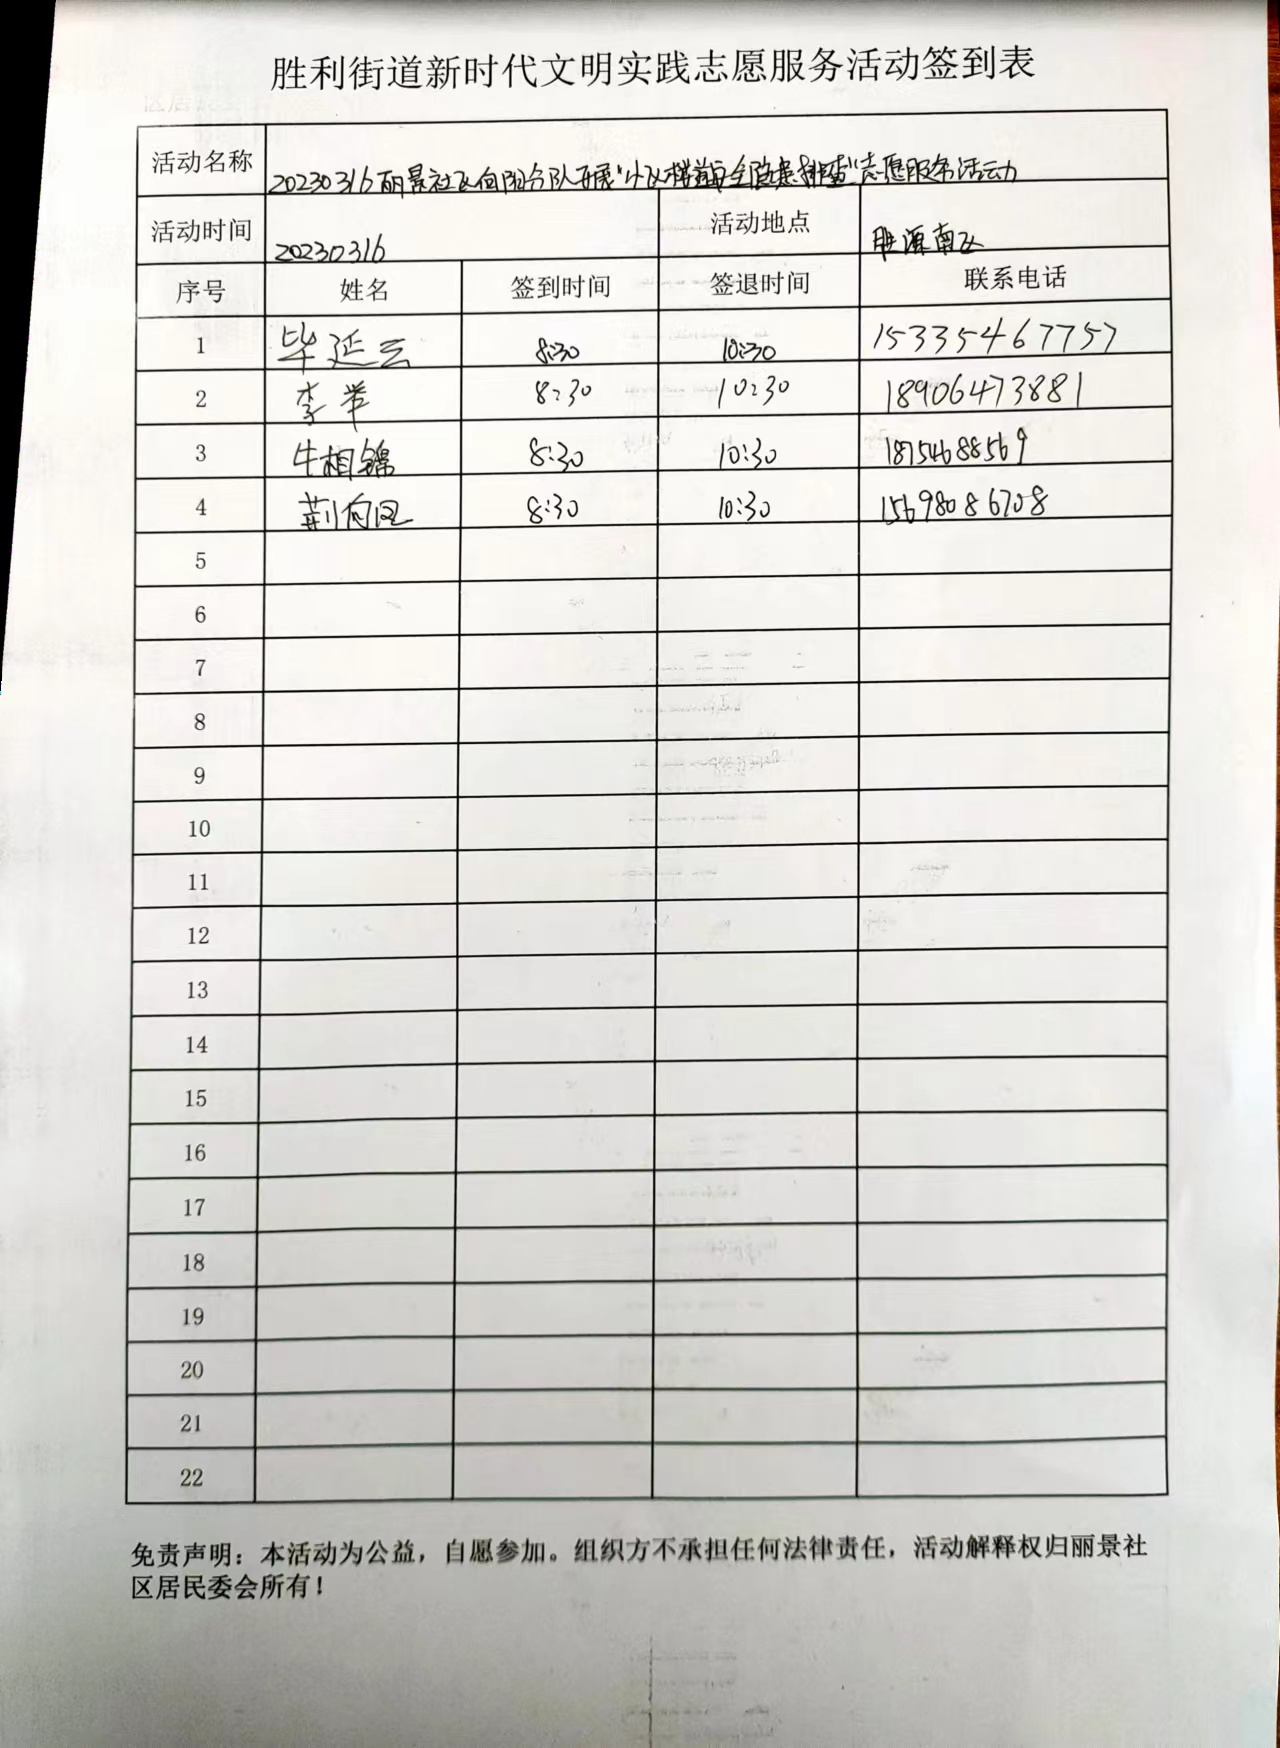 胜利街道新时代文明实践志愿服务活动签到表
活动名称 20230316丽景社区向阳分队开展“小区楼道安全隐患排查”志愿服务活动
活动时间 20230316 活动地点 胜源南区
序号 姓名 签到时间 签退时间 联系电话
1 毕延云 8:30 10:30 15335467757
2 李举 8:30 10:30 18906473881
3 牛相锦 8:30 10:30 18754688569
4 荆向 8:30 10:30 15698086708
5
6
7
8
9
10
11
12
13
14
15
16
17
18
19
20
21
22
免责声明：本活动为公益，自愿参加。组织方不承担任何法律责任，活动解释权归丽景社
区居民委会所有！